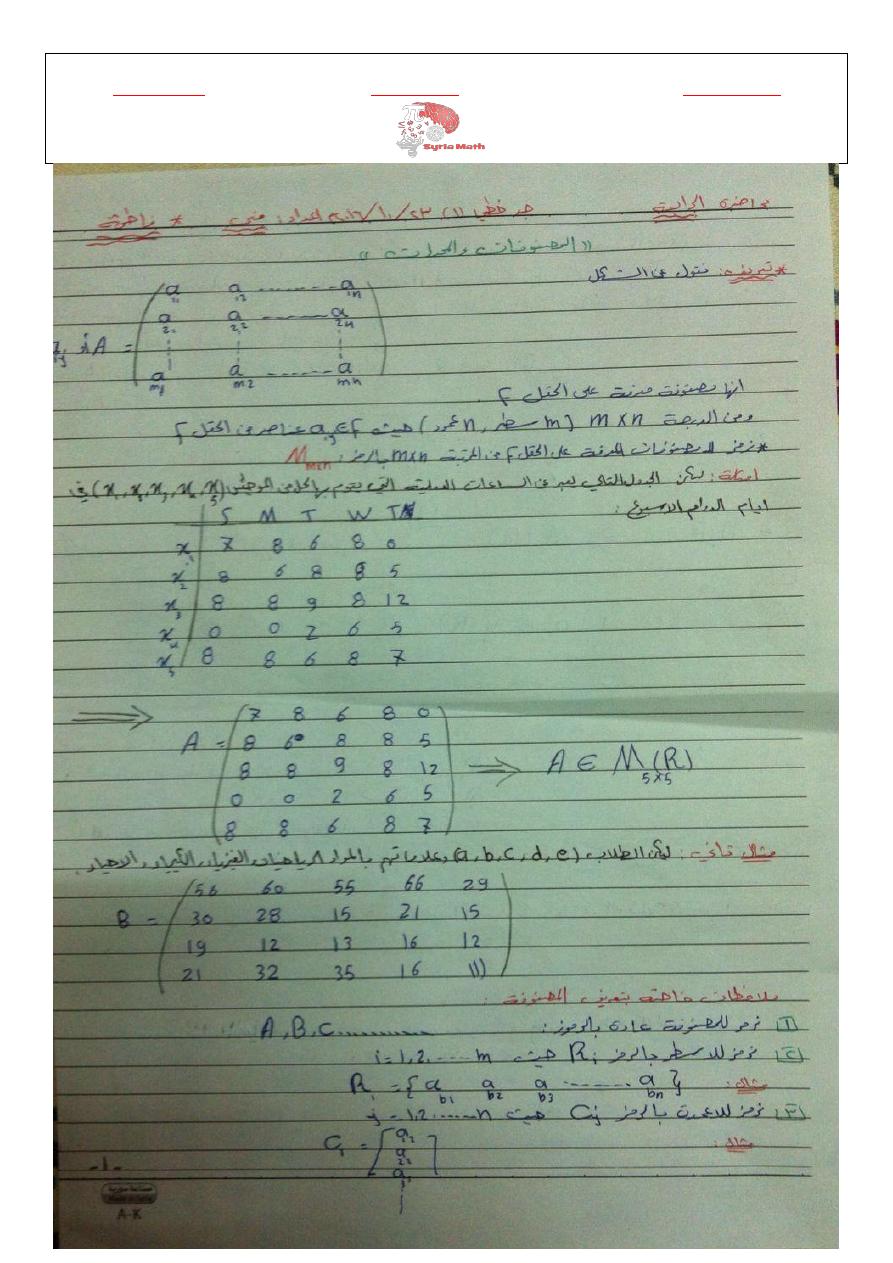 Syria Math
محاضرة الرابعة جبر خطي (1) 23/10/2016 إعداد: منى * ناظرية
« المصفوفات والمحددات »
* تعريف: نقول عن الشكل
A = ( a11 a12 ........ a1n
a21 a22 ........ a2n
am1 am2 ........ amn )
أنها مصفوفة معرفة على الحقل F.
ومن الدرجة m×n (m سطر, n عمود) حيث aij∈F عناصر من الحقل F
* نرمز للمصفوفات المعرفة على الحقل F من المرتبة m×n بالرمز: Mm×n
أمثلة: ليكن الجدول التالي يعبر عن الساعات العملية التي يقوم بها (x1, x2, x3, x4, x5) في
أيام الدوام الاسبوع:
S M T W TH
x1 7 8 6 8 0
x2 8 6 8 8 5
x3 8 8 9 8 12
x4 0 0 2 6 5
x5 8 8 6 8 7
⟹ A = ( 7 8 6 8 0
8 6 8 8 5
8 8 9 8 12 ⟹ A ∈ M5×5(R)
0 0 2 6 5
8 8 6 8 7 )
مثال ثاني: ليكن الطلاب (a, b, c, d, e) وعلاماتهم بالمواد الرياضيات, الفيزياء, الكيمياء, الاحياء.
B = ( 56 60 55 66 29
30 28 15 21 15
19 12 13 16 12
21 32 35 16 )
ملاحظات خاصة بتعريف المصفوفة:
1 نرمز للمصفوفة عادة بالرموز: A, B, C...........
2 نرمز للاسطر بالرمز Ri حيث i = 1, 2, ..... m
مثال: R1 = { ab1 ab2 ab3 ........ abn }
3 نرمز للاعمدة بالرمز Cj حيث j = 1, 2 ...... n
مثال: C1 =
-1-
A-K